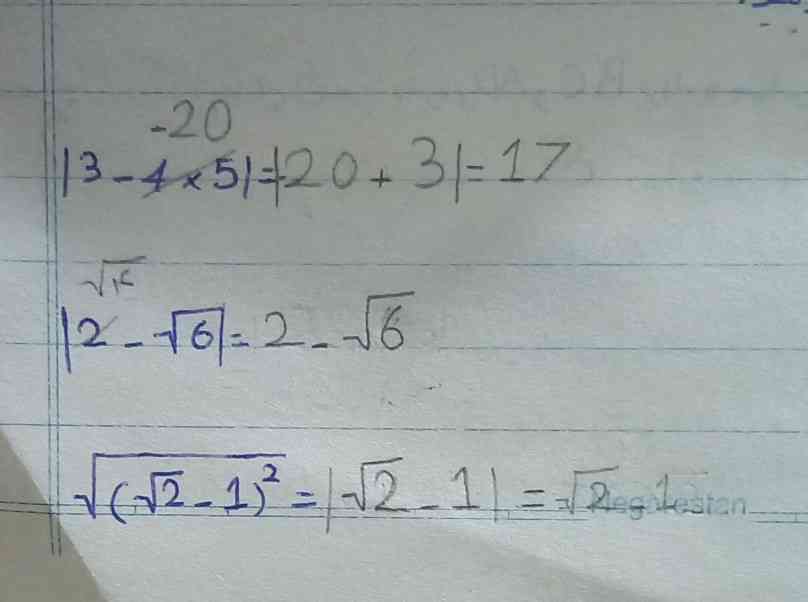 -20
|3 - 4 × 5| = |-20 + 3| = 17
|2 - √6| = 2 - √6
√(√2 - 1)² = |√2 - 1| = √2 - 1